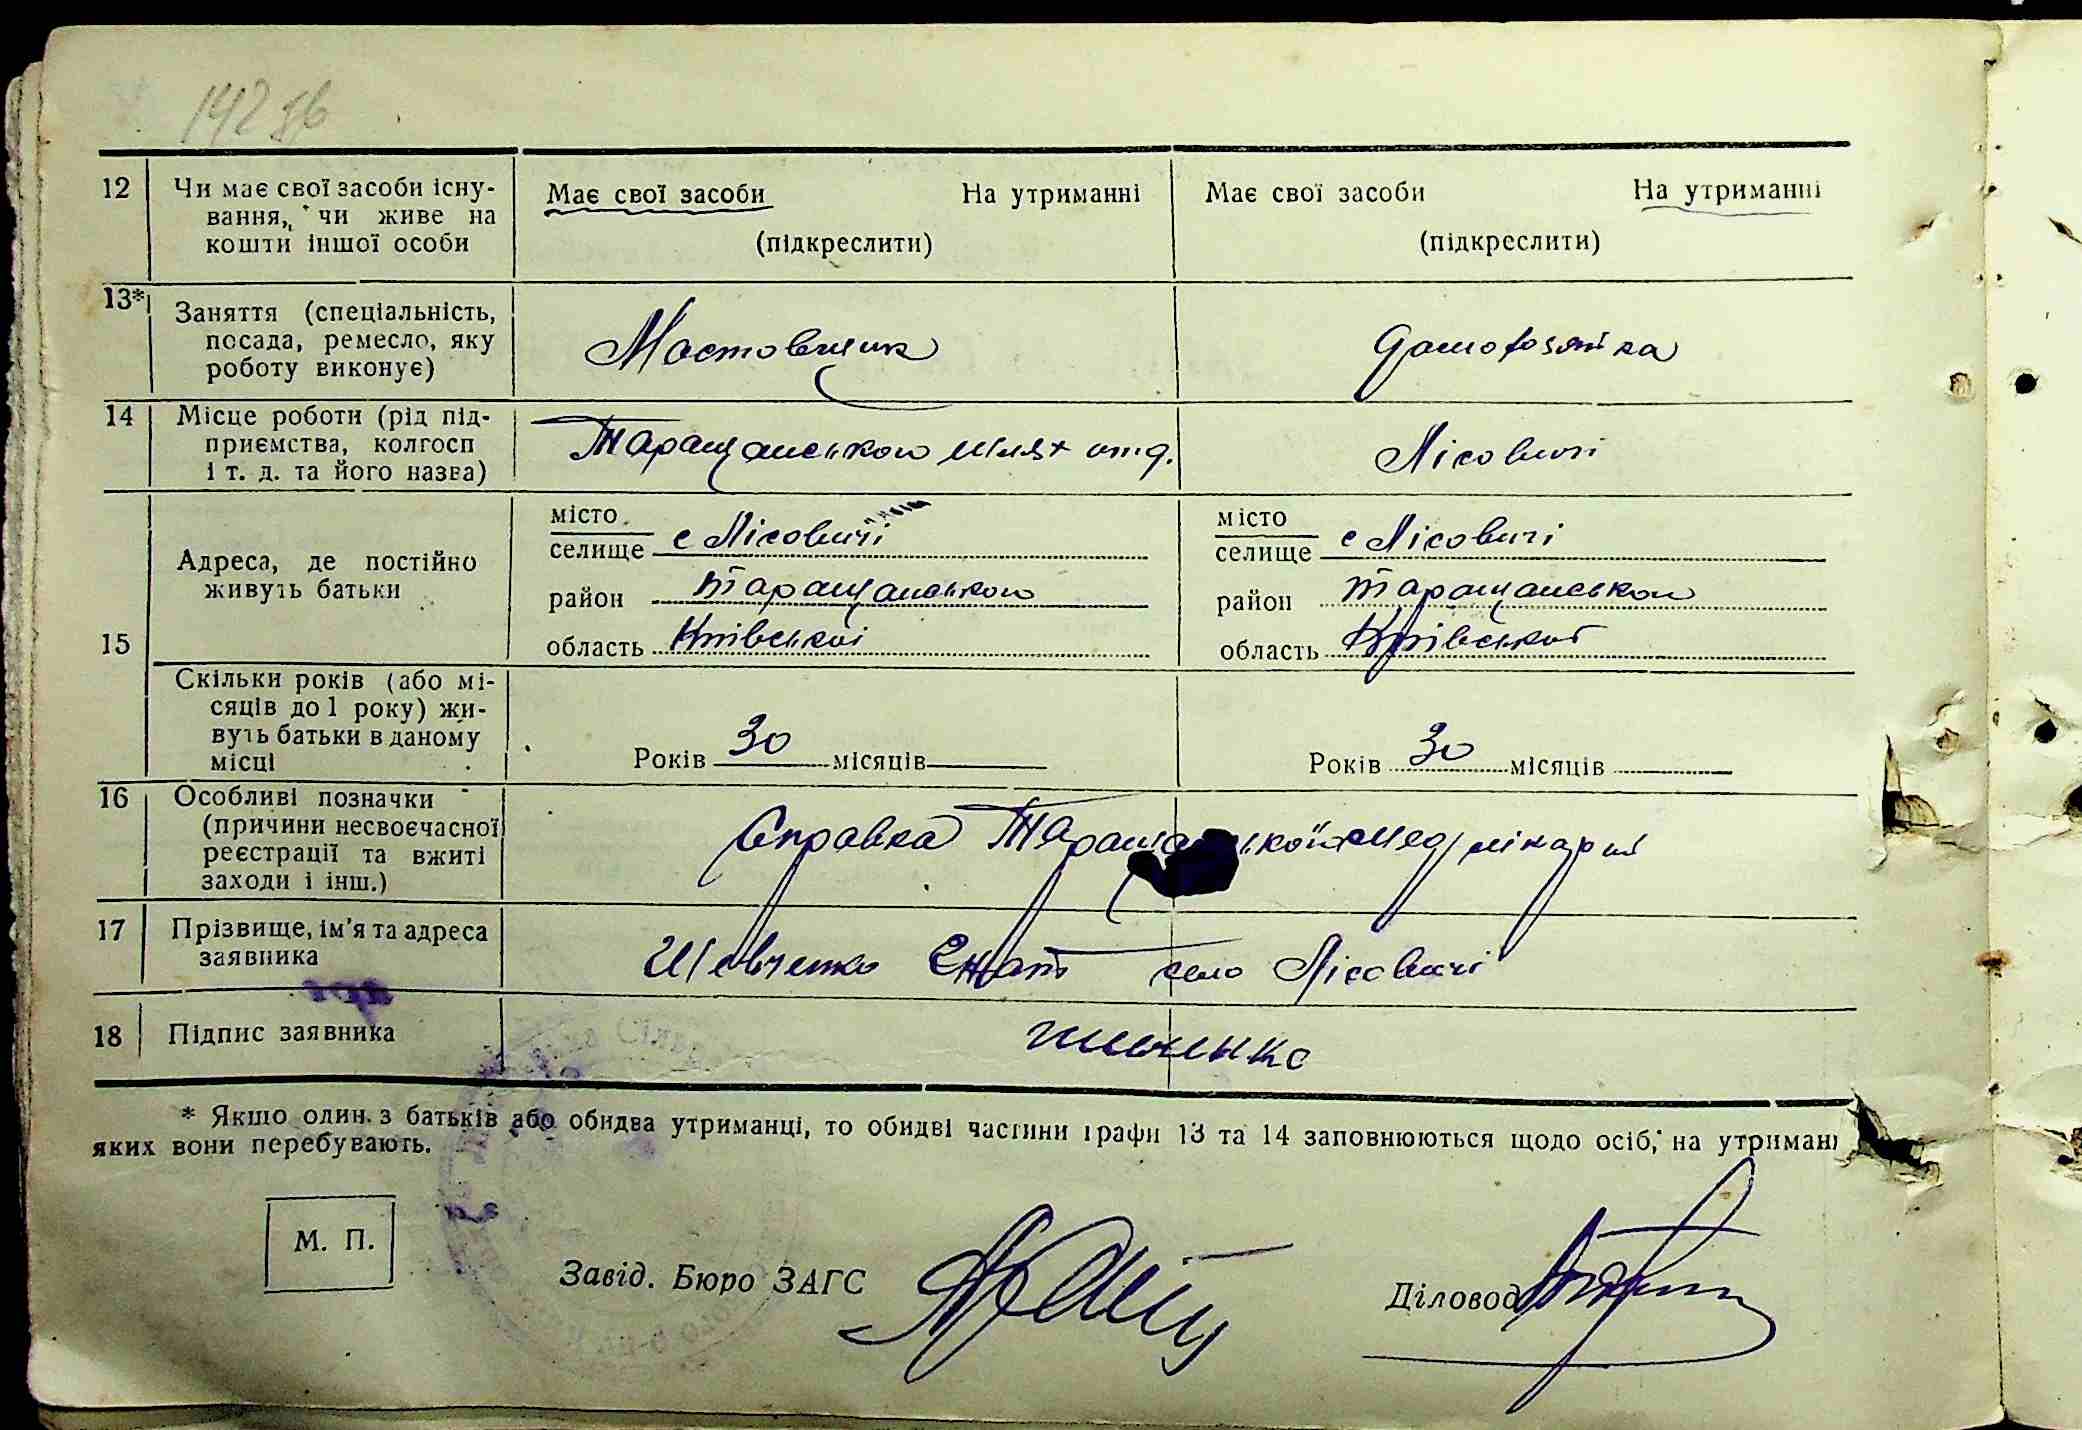 142 зв
12 Чи має свої засоби існу- Має свої засоби На утриманні Має свої засоби На утриманні
вання, чи живе на
кошти іншої особи (підкреслити) (підкреслити)
13* Заняття (спеціальність,
посада, ремесло, яку Мостовщик домохозяйка
роботу виконує)
14 Місце роботи (рід під-
приємства, колгосп Таращанського шлях Лісовичі
і т. д. та його назва)
місто місто
селище с Лісовичі селище с Лісовичі
Адреса, де постійно
живуть батьки район Таращанського район Таращанського
15 область Київської область Київської
Скільки років (або мі-
сяців до 1 року) жи-
вуть батьки в даному
місці Років 30 місяців Років 30 місяців
16 Особливі позначки
(причини несвоєчасної Справка
реєстрації та вжиті
заходи і інш.)
17 Прізвище, ім'я та адреса
заявника Шевченко село Лісовичі
18 Підпис заявника
* Якщо один з батьків або обидва утриманці, то обидві частини графи 13 та 14 заповнюються щодо осіб, на утриман
яких вони перебувають.
М. П.
Завід. Бюро ЗАГС
Діловод